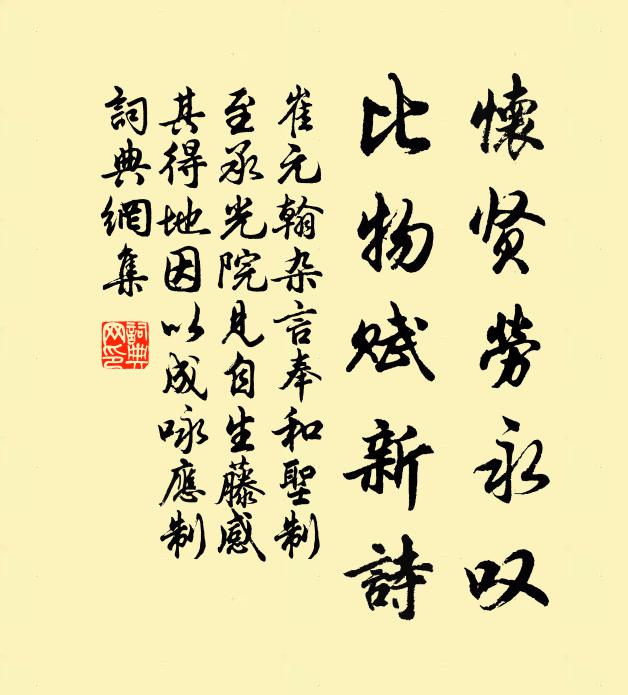 懷贤勞永叹
比物赋新詩
崔元翰杂言奉和聖制
至承光院見自生藤感
其得地因以成咏應制
詞典網集
詞典网印